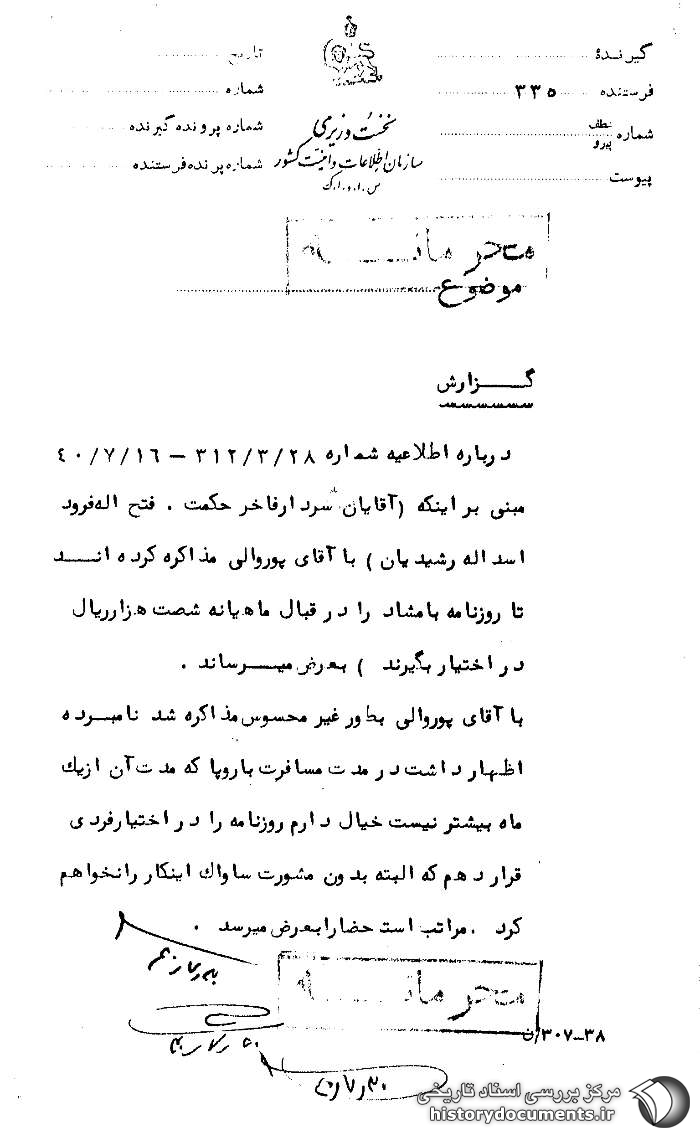 گیرندۀ
فرستنده ۳۳۵
شماره عطف پیرو
پیوست
نخست وزیری
سازمان اطلاعات و امنیت کشور
س.ا.و.ا.ک
تاریخ
شماره
شماره پرونده گیرنده
شماره پرونده فرستنده
محرمانه
موضوع
گزارش
درباره اطلاعیه شماره ۳۱۲/۳/۲۸ – ۴۰/۷/۱۶
مبنی بر اینکه (آقایان سردار فاخر حکمت . فتح اله فرود
اسداله رشیدیان ) با آقای پوروالی مذاکره کرده انـــد
تا روزنامه بامشاد را در قبال ماهیانه شصت هزار ریال
در اختیار بگیرند ) بعرض میــرساند .
با آقای پوروالی بطور غیر محسوس مذاکره شد نامبــرده
اظهار داشت در مدت مسافرت باروپا که مدت آن از یك
ماه بیشتر نیست خیال دارم روزنامه را در اختیار فردی
قرار دهم که البته بدون مشورت ساواك اینکار را نخواهم
کرد . مراتب استحضارا بعرض میرسد .
محرمانه
۳۰۷-۳۸/ن
مرکز بررسی اسناد تاریخی
historydocuments.ir